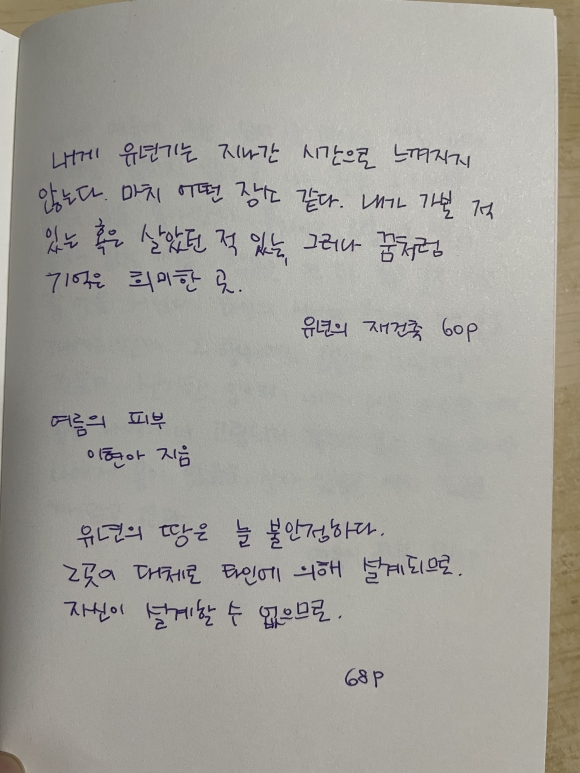 내게 유년기는 지나간 시간으로 느껴지지
않는다. 마치 어떤 장소 같다. 내가 가본 적
있는 혹은 살았던 적 있는, 그러나 꿈처럼
기억은 희미한 곳.
유년의 재건축 60p
여름의 피부
이현아 지음
유년의 땅은 늘 불안정하다.
그곳이 대체로 타인에 의해 설계되므로.
자신이 설계할 수 없으므로.
68p